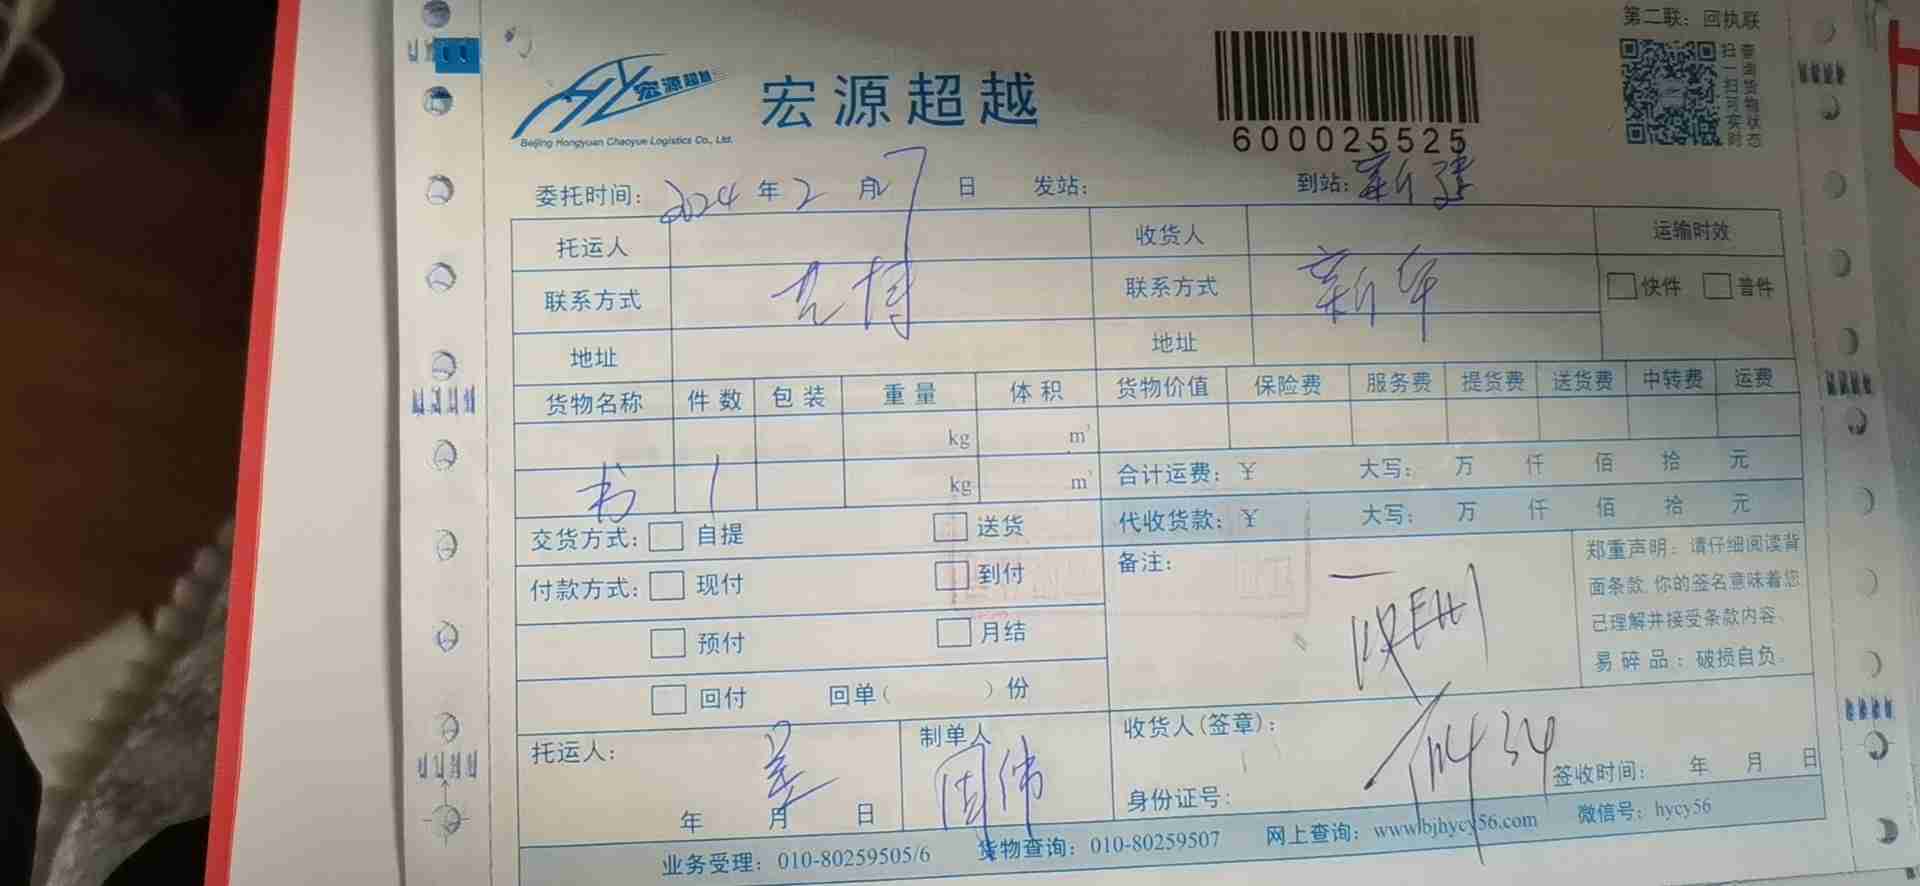 第二联：回执联
扫一扫可实时
查询货物状态
宏源超越
Beijing Hongyuan Chaoyue Logistics Co., Ltd.
宏源超越
600025525
委托时间： 2024 年 2 月 27 日 发站： 到站：新疆
托运人 收货人 运输时效
联系方式 联系方式 新华 快件 普件
地址 地址
货物名称 件数 包装 重量 体积 货物价值 保险费 服务费 提货费 送货费 中转费 运费
kg m³
书 1 kg m³ 合计运费：￥ 大写： 万 仟 佰 拾 元
交货方式： 自提 送货 代收货款：￥ 大写： 万 仟 佰 拾 元
付款方式： 现付 到付 备注：
预付 月结
回付 回单（ ）份
郑重声明：请仔细阅读背
面条款,你的签名意味着您
已理解并接受条款内容、
易碎品：破损自负。
托运人： 姜 制单人 周伟 收货人(签章)：
年 月 日 身份证号： 签收时间： 年 月 日
业务受理：010-80259505/6 货物查询：010-80259507 网上查询：www.bjhycy56.com 微信号：hycy56